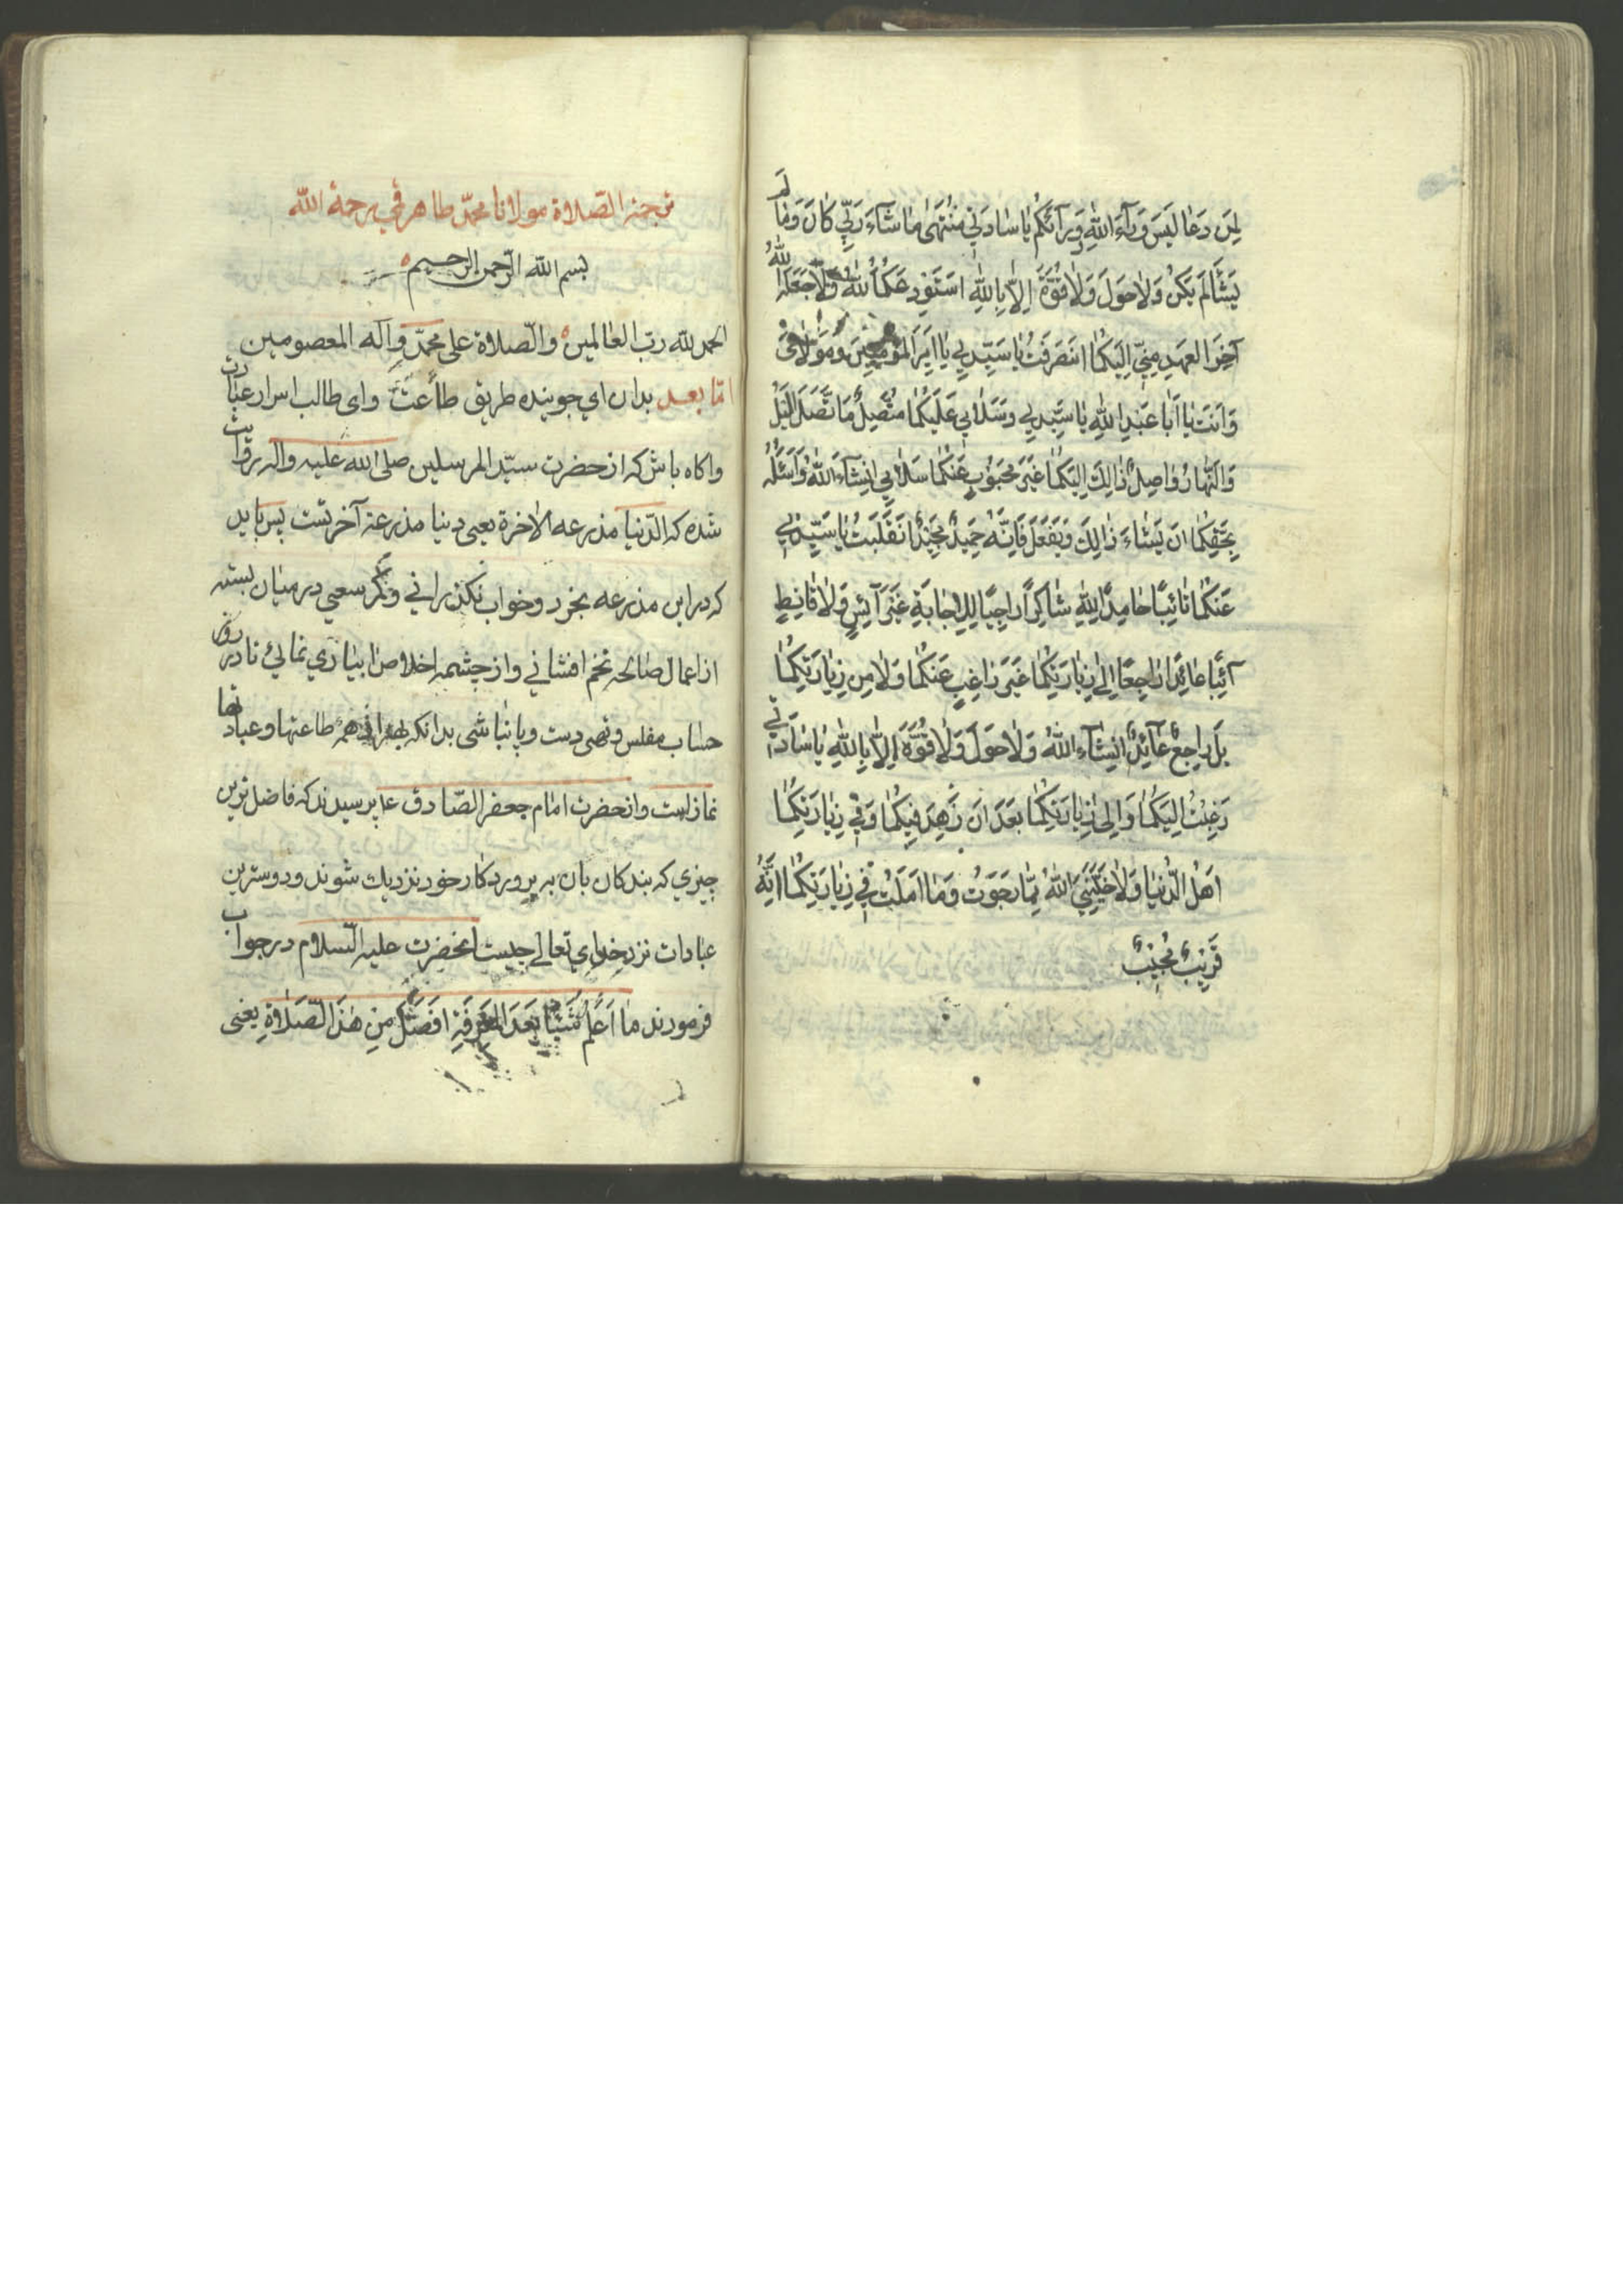 لِمَن دَعَا لَيسَ وَرآءَ اللهِ وَ وَرآئَكُم يا سٰادَتي مُنتَهىٰ مٰا شآءَ رَبّي كٰانَ وَمٰا لَم
يَشَأ لَم يَكُن وَلاٰ حَولَ وَلاٰ قُوَّةَ اِلاّٰ بِاللهِ اَستَودِعُكُمَا اللهَ وَلاٰ جَعَلَهُ اللهُ
آخِرَ العَهدِ مِنّي اِلَيكُمٰا انصَرَفتُ يٰا سَيِّدي يٰا اَميرَ المُؤمِنينَ وَمَولاٰيَ
وَاَنتَ يٰا اَبٰا عَبدِ اللهِ يٰا سَيِّدي وَسَلاٰمي عَلَيكُمٰا مُتَّصِلٌ مَا تَّصَلَ اللَّيلُ
وَالنَّهٰارُ وٰاصِلٌ ذٰالِكَ اِلَيكُمٰا غَيرَ مَحجُوبٍ عَنكُمٰا سَلاٰمي اِنشآءَ اللهُ وَاَسئَلُهُ
بِحَقِّكُمٰا اَن يَشٰاءَ ذٰالِكَ وَيَفعَلَ فَاِنَّهُ حَميدٌ مَجيدٌ انقَلَبتُ يٰا سَيِّدَيَّ
عَنكُمٰا تٰائِبًا حٰامِدًا لِلّٰهِ شٰاكِرًا رٰاجِيًا لِلاِجٰابَةِ غَيرَ آئِسٍ وَلاٰ قٰانِطٍ
آئِبًا عٰائِدًا رٰاجِعًا اِلىٰ زِيٰارَتِكُمٰا غَيرَ رٰاغِبٍ عَنكُمٰا وَلاٰ مِن زِيٰارَتِكُمٰا
بَل رٰاجِعٌ عٰآئِدٌ اِنشٰآءَ اللهُ وَلاٰ حَولَ وَلاٰ قُوَّةَ اِلاّٰ بِاللهِ يٰا سٰادَتي
رَغِبتُ اِلَيكُمٰا وَاِلىٰ زِيٰارَتِكُمٰا بَعدَ اَن زَهِدَ فيكُمٰا وَفي زِيٰارَتِكُمٰا
اَهلُ الدُّنيٰا وَلاٰ خَيَّبَنِيَ اللهُ مِمّٰا رَجَوتُ وَمٰا اَمَلتُ في زِيٰارَتِكُمٰا اِنَّهُ
قَريبٌ مُجيبٌ
ترجمۀ الصّلاة مولانا محمّد طاهر قمي رحمة الله
بسم الله الرّحمن الرحيم
الحمد لله ربّ العالمين والصّلاة على محمّد وآله المعصومين
امّا بعد بدان اي جوينده طريق طاعت واى طالب اسرار عبادت
واكاه باش كه از حضرت سيّد المرسلين صلى الله عليه واله روايت
شده كه الدّنيا مذرعه الاخرة يعنى دنيا مذرعۀ آخرتست پس بايد
كه در اين مذرعه بخورد وخواب نكذراني وكمر سعي در ميان بسته
از اعمال صالحه تخم افشاني واز چشمه اخلاص ابياري نمائي تا در روز
حساب مفلس وتهى دست وپا نباشى بدانكه بهترين همۀ طاعتها وعبادتها
نماز است وانحضرت امام جعفر الصّادق ع پرسيدند كه فاضل ترين
چيزي كه بندكان بان به پروردكار خود نزديك شوند ودوسترين
عبادات نزد خداي تعالى چيست انحضرت عليه السّلام در جواب
فرمودند مٰا اَعلَم شَيئًا بَعدَ المَعرِفَةِ اَفضَل مِن هٰذَا الصَّلاٰةِ يعنى